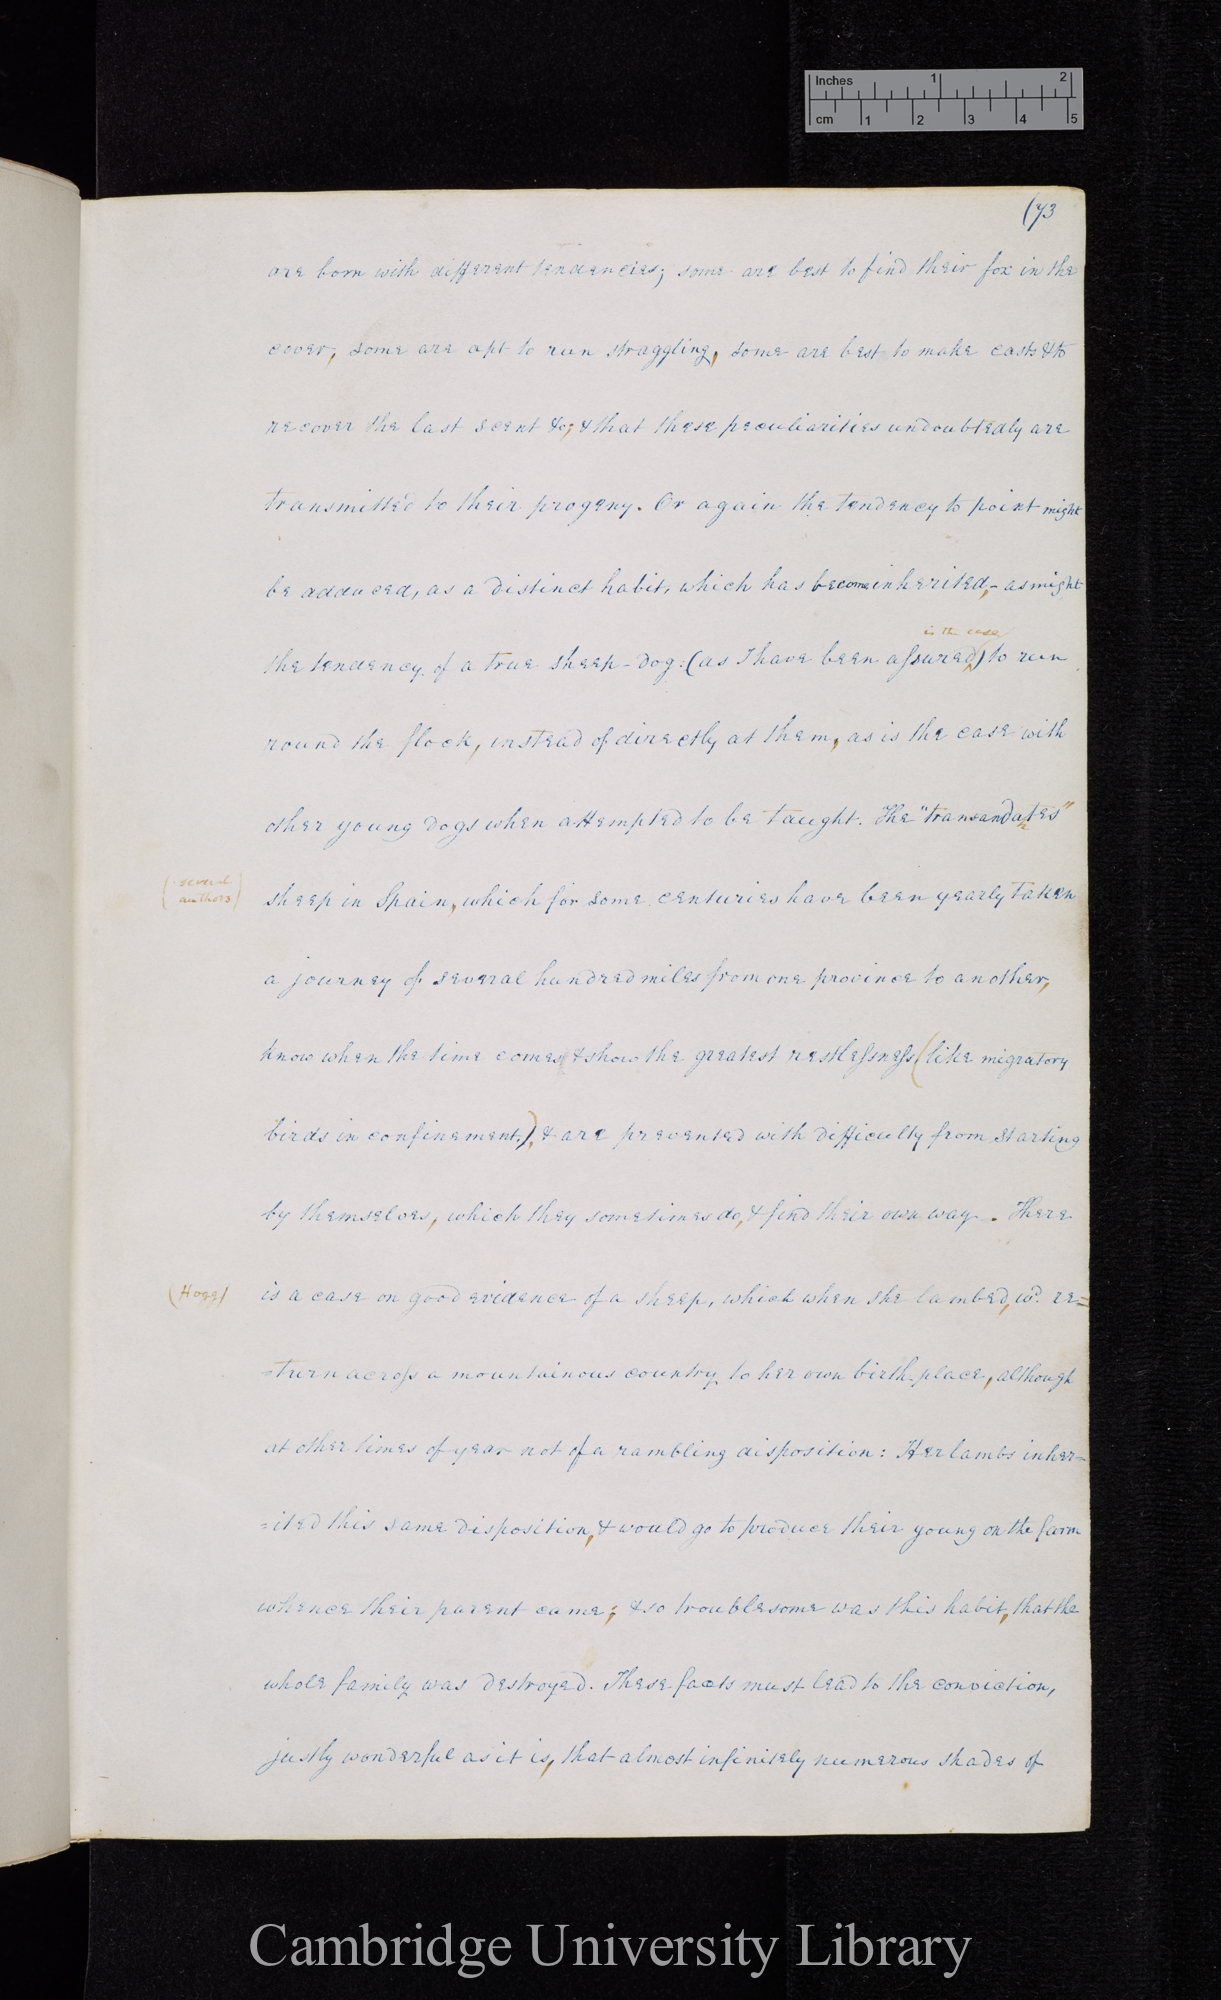 Inches 1 2
cm 1 2 3 4 5
(73
are born with different tendencies; some are best to find their fox in the
cover, some are apt to run straggling, some are best to make casts & to
recover the last scent &c; & that these peculiarities undoubtedly are
transmitted to their progeny. Or again the tendency to point might
be adduced, as a distinct habit, which has become inherited,- as might
is the case
the tendency of a true sheep-dog: (as I have been assured) to run
round the flock, instead of directly at them, as is the case with
other young dogs when attempted to be taught. The "transandantes"
(several
authors)
sheep in Spain, which for some centuries have been yearly taken
a journey of several hundred miles from one province to another,
know when the time comes & show the greatest restlessness (like migratory
birds in confinement,) & are prevented with difficulty from starting
by themselves, which they sometimes do, & find their own way. There
(Hogg)
is a case on good evidence of a sheep, which when she lambed, wd. re=
=turn across a mountainous country to her own birth-place, although
at other times of year not of a rambling disposition: Her lambs inher=
=ited this same disposition, & would go to produce their young on the farm
whence their parent came; & so troublesome was this habit, that the
whole family was destroyed. These facts must lead to the conviction,
justly wonderful as it is, that almost infinitely numerous shades of
Cambridge University Library